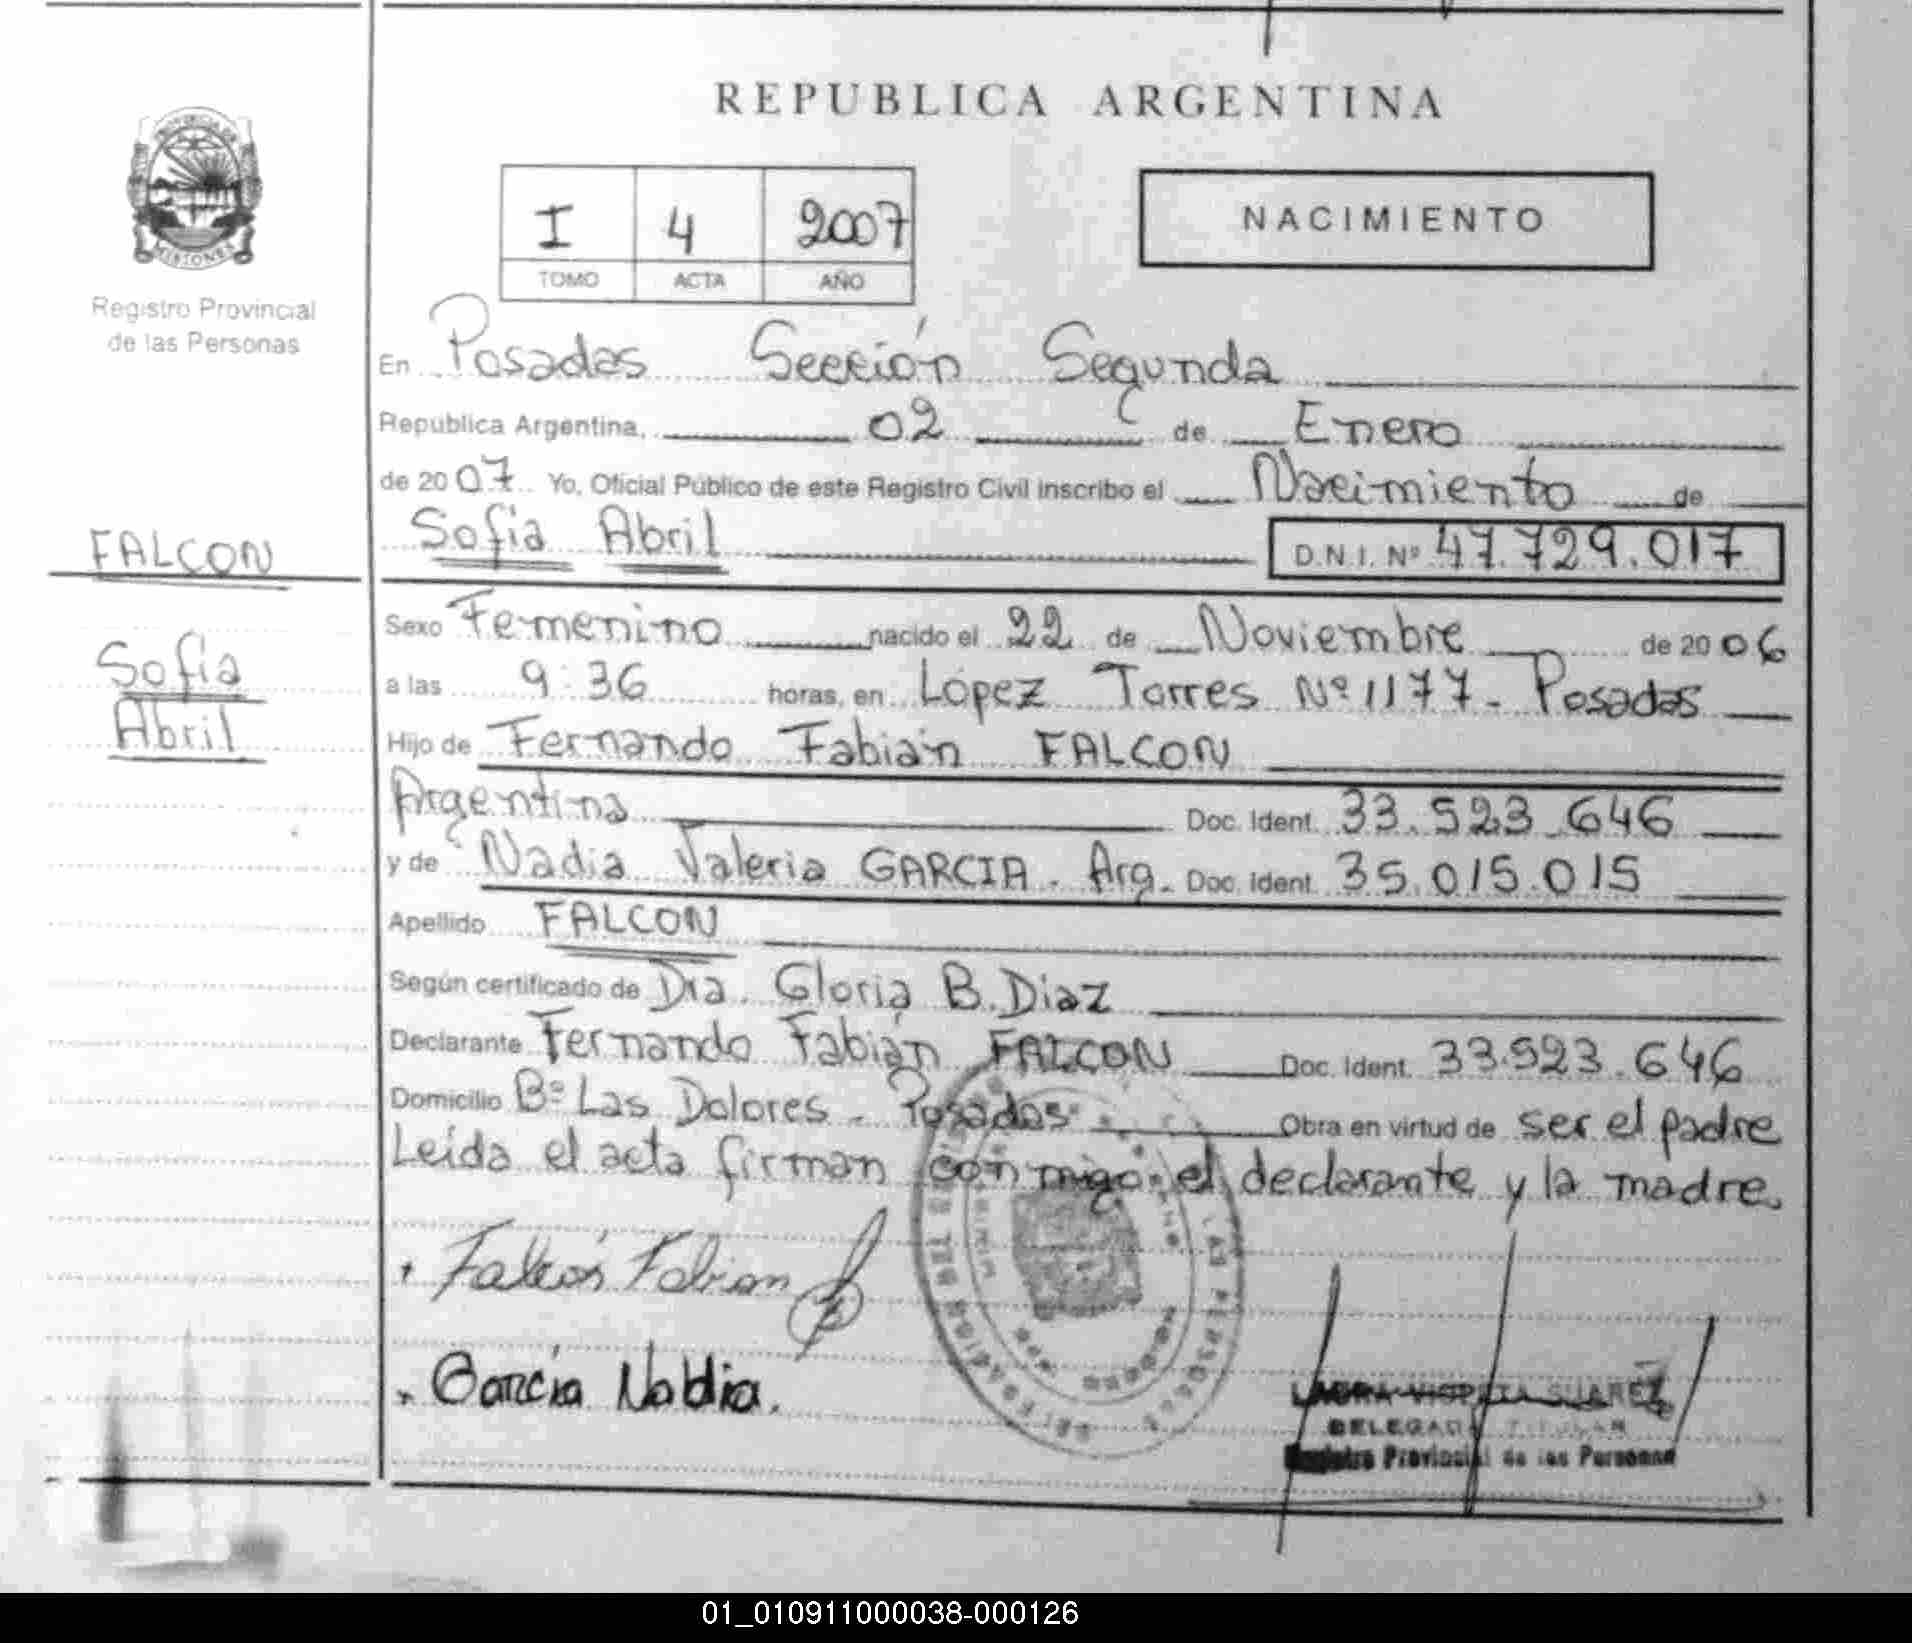 REPUBLICA ARGENTINA
PROVINCIA DE
MISIONES
Registro Provincial
de las Personas
I 4 2007
TOMO ACTA AÑO
NACIMIENTO
En Posadas Sección Segunda
Republica Argentina, 02 de Enero
de 2007 Yo, Oficial Público de este Registro Civil inscribo el Nacimiento de
FALCON
Sofía Abril D.N.I. Nº 47.729.017
Sofía
Abril
Sexo Femenino nacido el 22 de Noviembre de 2006
a las 9:36 horas, en López Torres Nº 1177 - Posadas
Hijo de Fernando Fabián FALCON
Argentina Doc. Ident. 33.523.646
y de Nadia Valeria GARCIA. Arg. Doc. Ident. 35.015.015
Apellido FALCON
Según certificado de Dra. Gloria B. Diaz
Declarante Fernando Fabián FALCON Doc. Ident. 33.523.646
Domicilio Bº Las Dolores - Posadas Obra en virtud de ser el padre
Leída el acta firman conmigo el declarante y la madre.
Falcón Fabian
García Nadia.
SUAREZ
DELEGADA TITULAR
Registro Provincial de las Personas
01_010911000038-000126